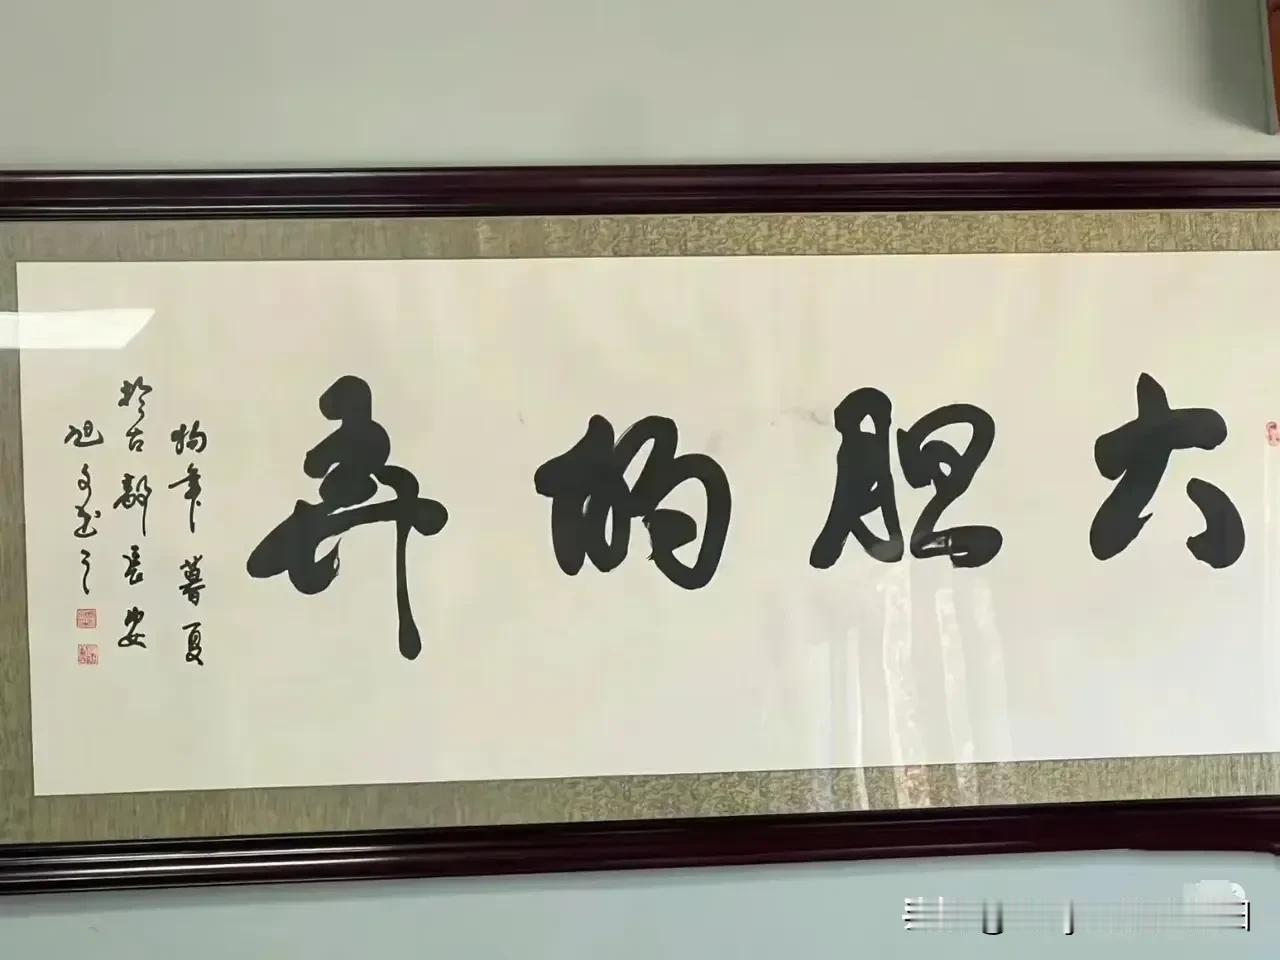 大胆的弄
狗年暮夏
於古都長安
旭文书之